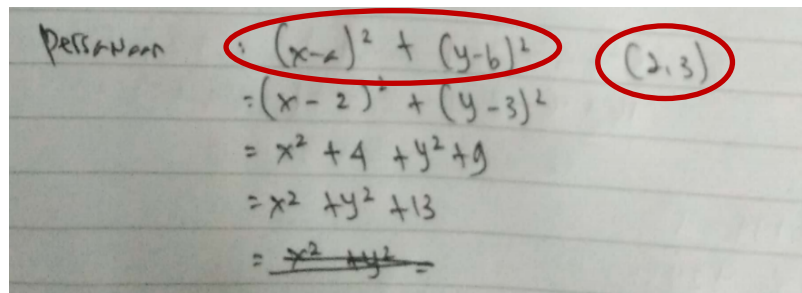 Persamaan : (x-a)² + (y-b)² (2,3)
= (x - 2)² + (y - 3)²
= x² + 4 + y² + 9
= x² + y² + 13
= x² + y² =